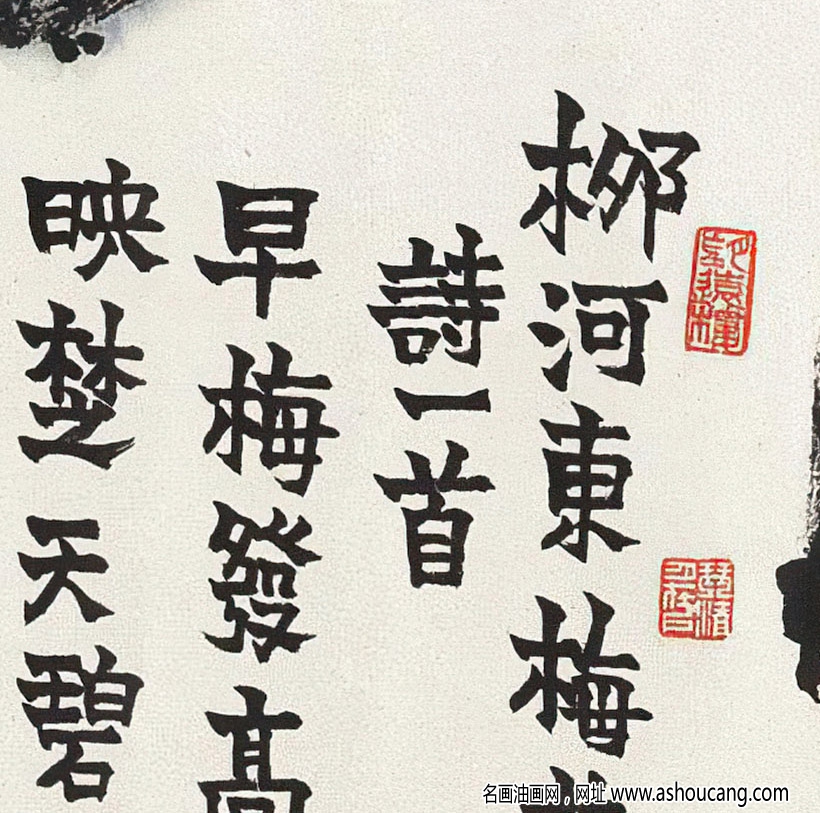 柳河東梅
詩一首
早梅發高
映楚天碧
名画油画网，网址 www.ashoucang.com